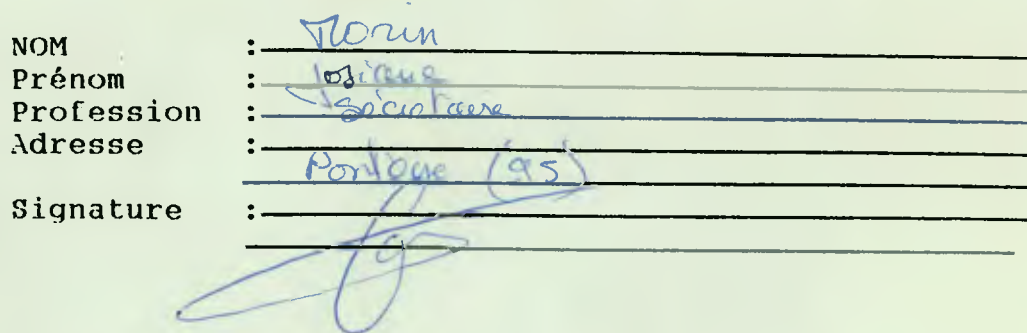 NOM : Morin
Prénom : Josiane
Profession : Secrétaire
Adresse :
Pontoise (95)
Signature :